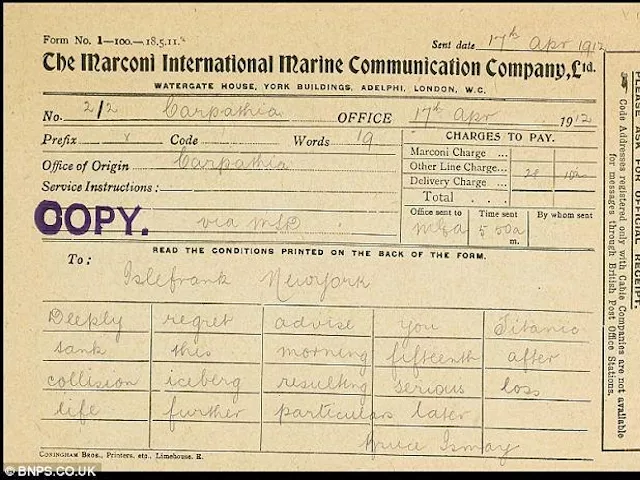 Form No. 1—100.—18.5.11.
Sent date 17th Apr 1912
The Marconi International Marine Communication Company, Ltd.
WATERGATE HOUSE, YORK BUILDINGS, ADELPHI, LONDON, W.C.
No. 2/2 Carpathia OFFICE 17th Apr 1912
Prefix Code Words 19
CHARGES TO PAY.
Marconi Charge ...
Office of Origin Carpathia
Other Line Charge...
Delivery Charge ...
Service Instructions:
Total . .
COPY.
via
Office sent to Time sent By whom sent
5 50a m.
READ THE CONDITIONS PRINTED ON THE BACK OF THE FORM.
To: Islefrank Newyork
Deeply regret advise you Titanic
sank this morning fifteenth after
collision iceberg resulting serious loss
life further particulars later
Bruce Ismay
Coningham Bros., Printers, etc., Limehouse, E.
PLEASE ASK FOR OFFICIAL RECEIPT.
Code Addresses registered only with Cable Companies are not available
for messages through British Post Office Stations.
© BNPS.CO.UK